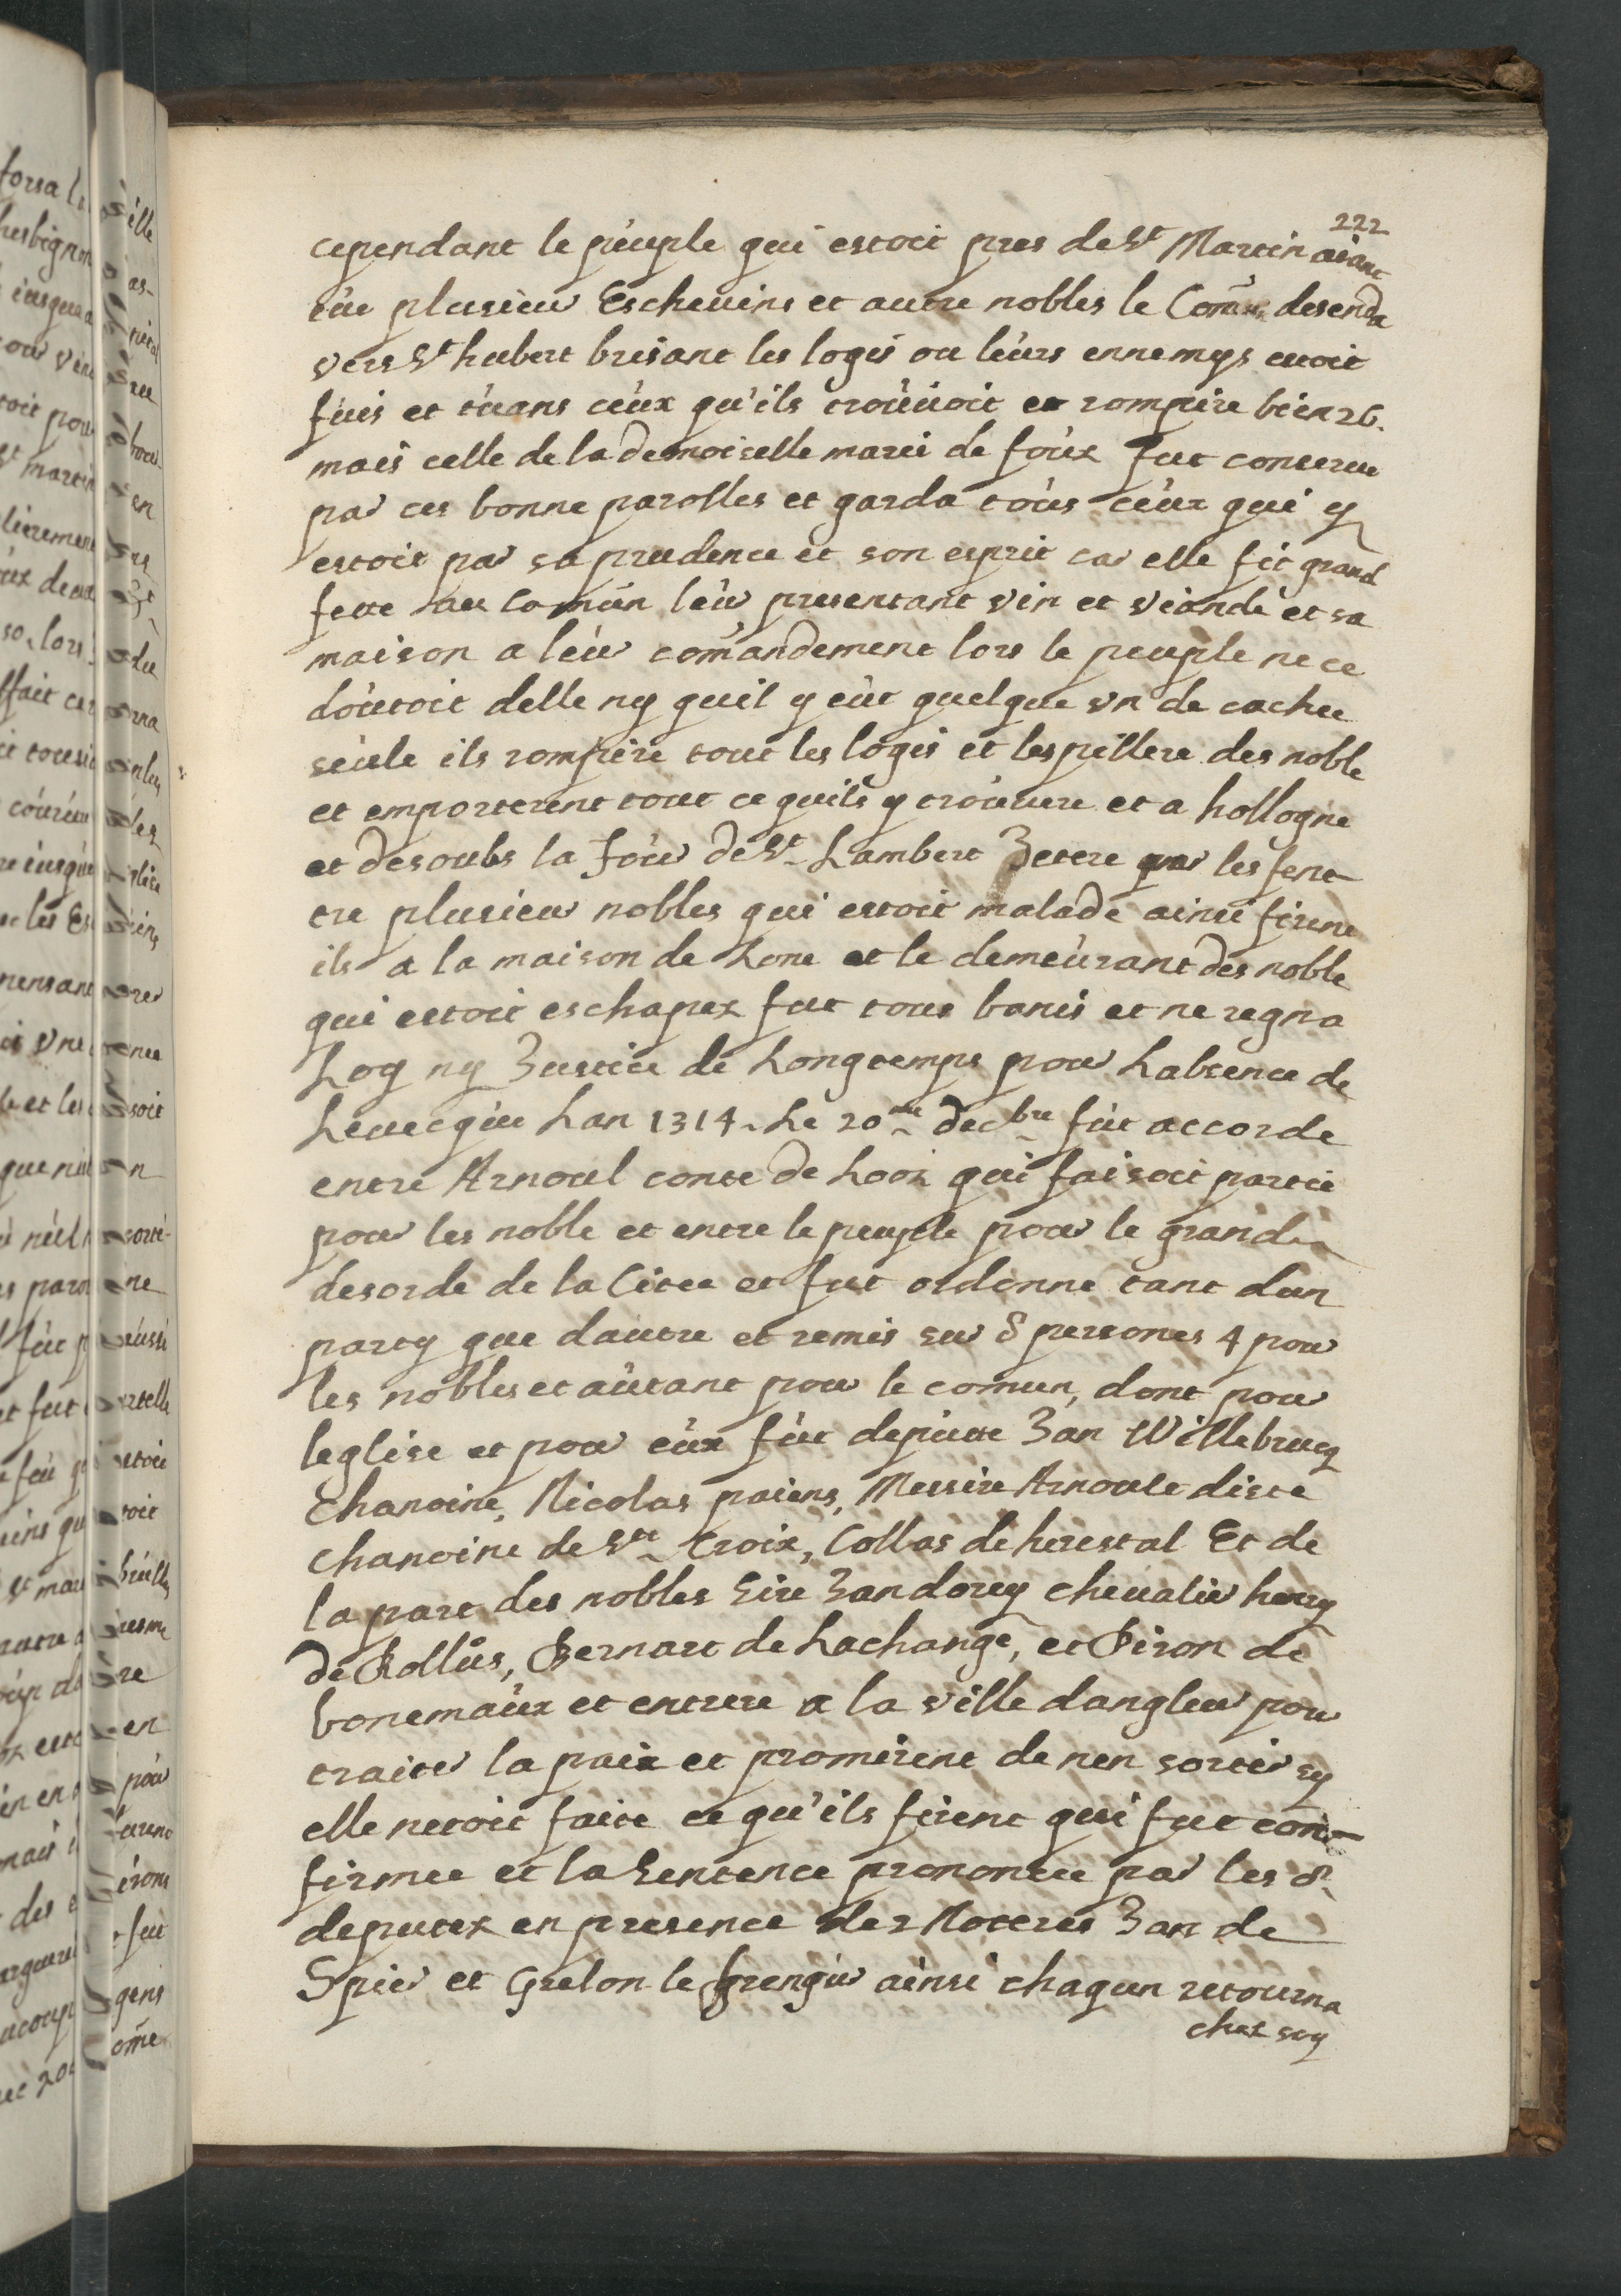 222
cependant le peuple qui estoit pres de St Martin aiant
tüe plusieur Escheuins et autre nobles le Comun desenda
vers St hubert brisant les logis ou leurs ennemys estoit
fuis et tuans ceux qu'ils trouuoit et rompire bien 26.
mais celle de la demoiselle marie de foux fut conserue
par ces bonne parolles et garda tous ceux qui y
estoit par sa prudence et son esprit car elle fit grand
feste au Comun leur presentant vin et viande et sa
maison a leur comandement lors le peuple ne ce
doutoit delle ny quil y eut quelque vn de cachee
seule ils rompire tout les logis et les pillere des noble
et emporterent tout ce quils y trouuere et a hollogne
et desoubs la Tour de St Lambert Jetere par les fene-
tre plusieur nobles qui estoit malade ainsi firent
ils a la maison de Lone et le demeurant des noble
qui estoit eschapez fut tous banis et ne regna
Loy ny Justice de Longtemps pour Labsence de
Leuecque Lan 1314. Le 20me decbre fut accorde
entre Arnoul conte de Looz qui faisoit partie
pour les noble et entre le peuple pour le grand
desorde de la Citee et fut ordonne tant dun
party que dautre et remis sur 8 persones 4 pour
les nobles et autant pour le comun, dont pour
leglise et pour eux fut depute Jan Willebrucq
Chanoine, Nicolas paiens, Messire Arnoule diste
chanoine de Ste Croix, Collas de herestal Et de
la part des nobles Sire Jan dorey cheualier henry
de Rollus, Bernart de Lachange, et Piron de
bonemaux et entrere a la ville dangleur pour
traiter la paix et promirent de nen sortir sy
elle netoit faite ce qu'ils firent qui fut con-
firmee et la Sentence prononcee par les 8
deputez en presence de 2 Noteres Jan de
Spier et Grelon le frengur ainsi chaqun retourna
chez soy